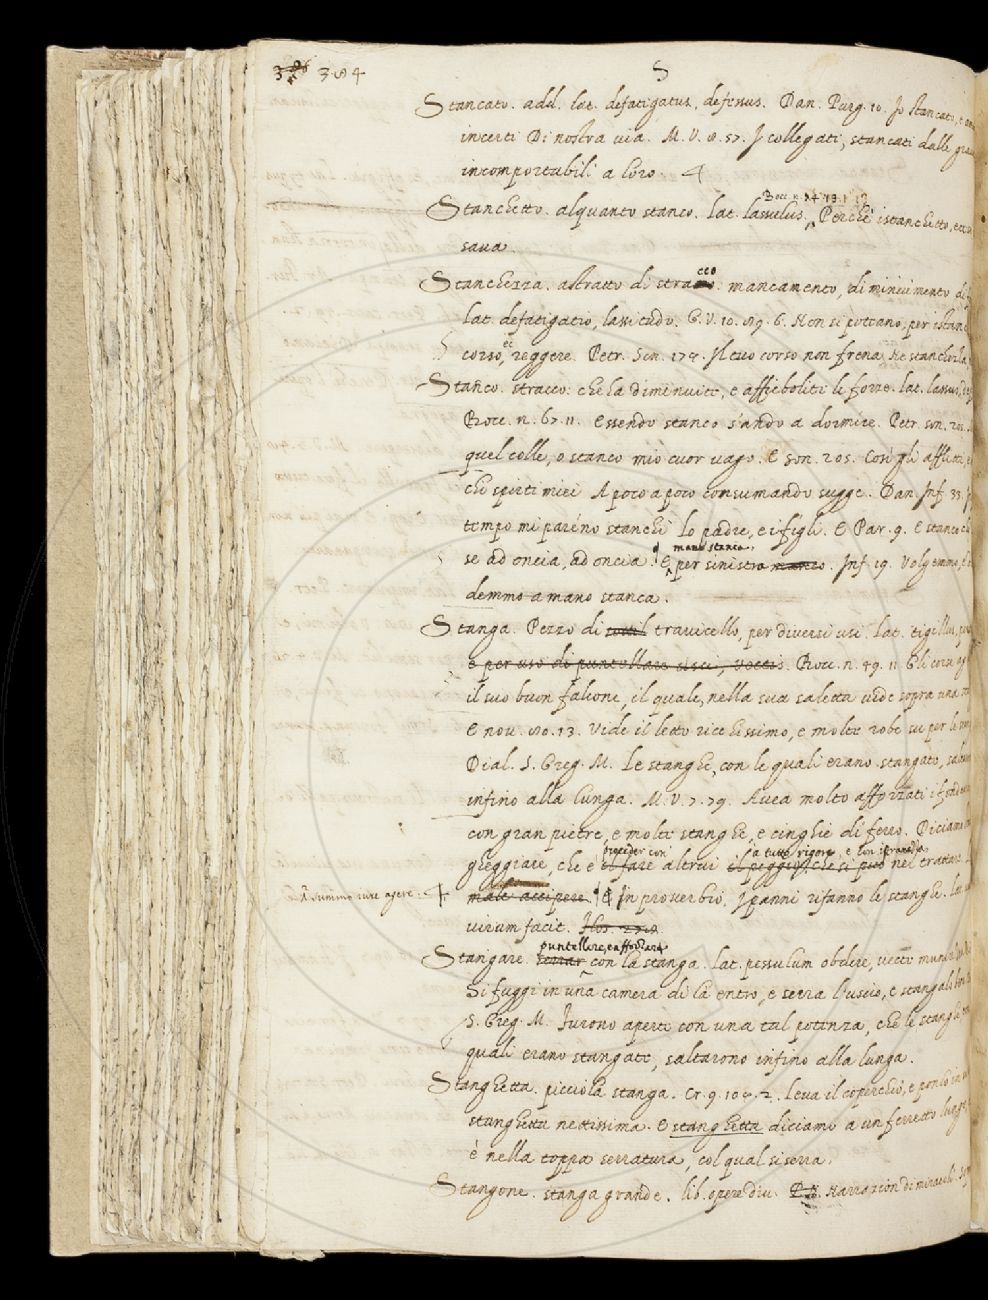 384
S
Stancato. add. lat. defatigatus, defessus. Dan. Purg. 10. Io stancato, e
incerti Di nostra via. M. V. 8. 57. I collegati, stancati dalle
incomportabili a loro.
Bocc. n.
Stanchetto. alquanto stanco. lat. lassulus. Perchè istanchetto,
sava.
Stanchezza. astratto di stracco. mancamento, diminuimento di
lat. defatigatio, lassitudo. G. V. 10. 89. 6. Non si poteano, per istan
corso, reggere. Petr. Son. Il tuo corso non frena Ne stanchezza,
Stanco. stracco: che ha diminuite, e affiebolite le forze. lat. lassus,
Bocc. n. 67. 11. Essendo stanco s'andò a dormire. Petr. son.
quel colle, o stanco mio cuor vago. E Son. 205. Così gli afflitti, e
chi spirti miei A poco a poco consumando sugge. Dan. Inf. 33.
tempo mi paréno stanchi lo padre, e i figli. E Par. 9. E stanco
mano stanca.
se ad oncia, ad oncia. E per sinistra manco. Inf. 19. Volgemmo,
demmo a mano stanca.
Stanga. Pezzo di travicello, per diversi usi. Lat. tigillus,
e per uso di puntellare Bocc. n. 49. 11. Gli corse
il suo buon falcone, il quale, nella sua saletta vide sopra una
E nov. 80. 13. Vide il letto ricchissimo, e molte robe su per le
Dial. S. Greg. M. Le stanghe, con le quali erano stangate,
infino alla lunga. M. V. 7. 79. Avea molto afforzati i
con gran pietre, e molte stanghe, e cinghie di ferro. Diciamo
proceder con a tutto rigore, e con
gheggiare, che è il fare altrui il peggio, che si può nel trattare
lat. summo iure agere.
male accipere. E In proverbio, I panni rifanno le stanghe. lat.
virum facit.
puntellare, e afforzare
Stangare. serrar con la stanga. lat. pessulum obdere, vecte
Si fuggì in una camera di là entro, e serra l'uscio, e
S. Greg. M. Furono aperte con una tal potenza, che le stanghe,
quali erano stangate, saltarono infino alla lunga.
Stanghetta. picciola stanga. Cr. 9. Leva il coperchio, e
stanghetta nettissima. E stanghetta diciamo a un ferretto
è nella toppa serratura, col qual si serra.
Stangone. stanga grande. lib. opere div. Narrazion di miracoli.